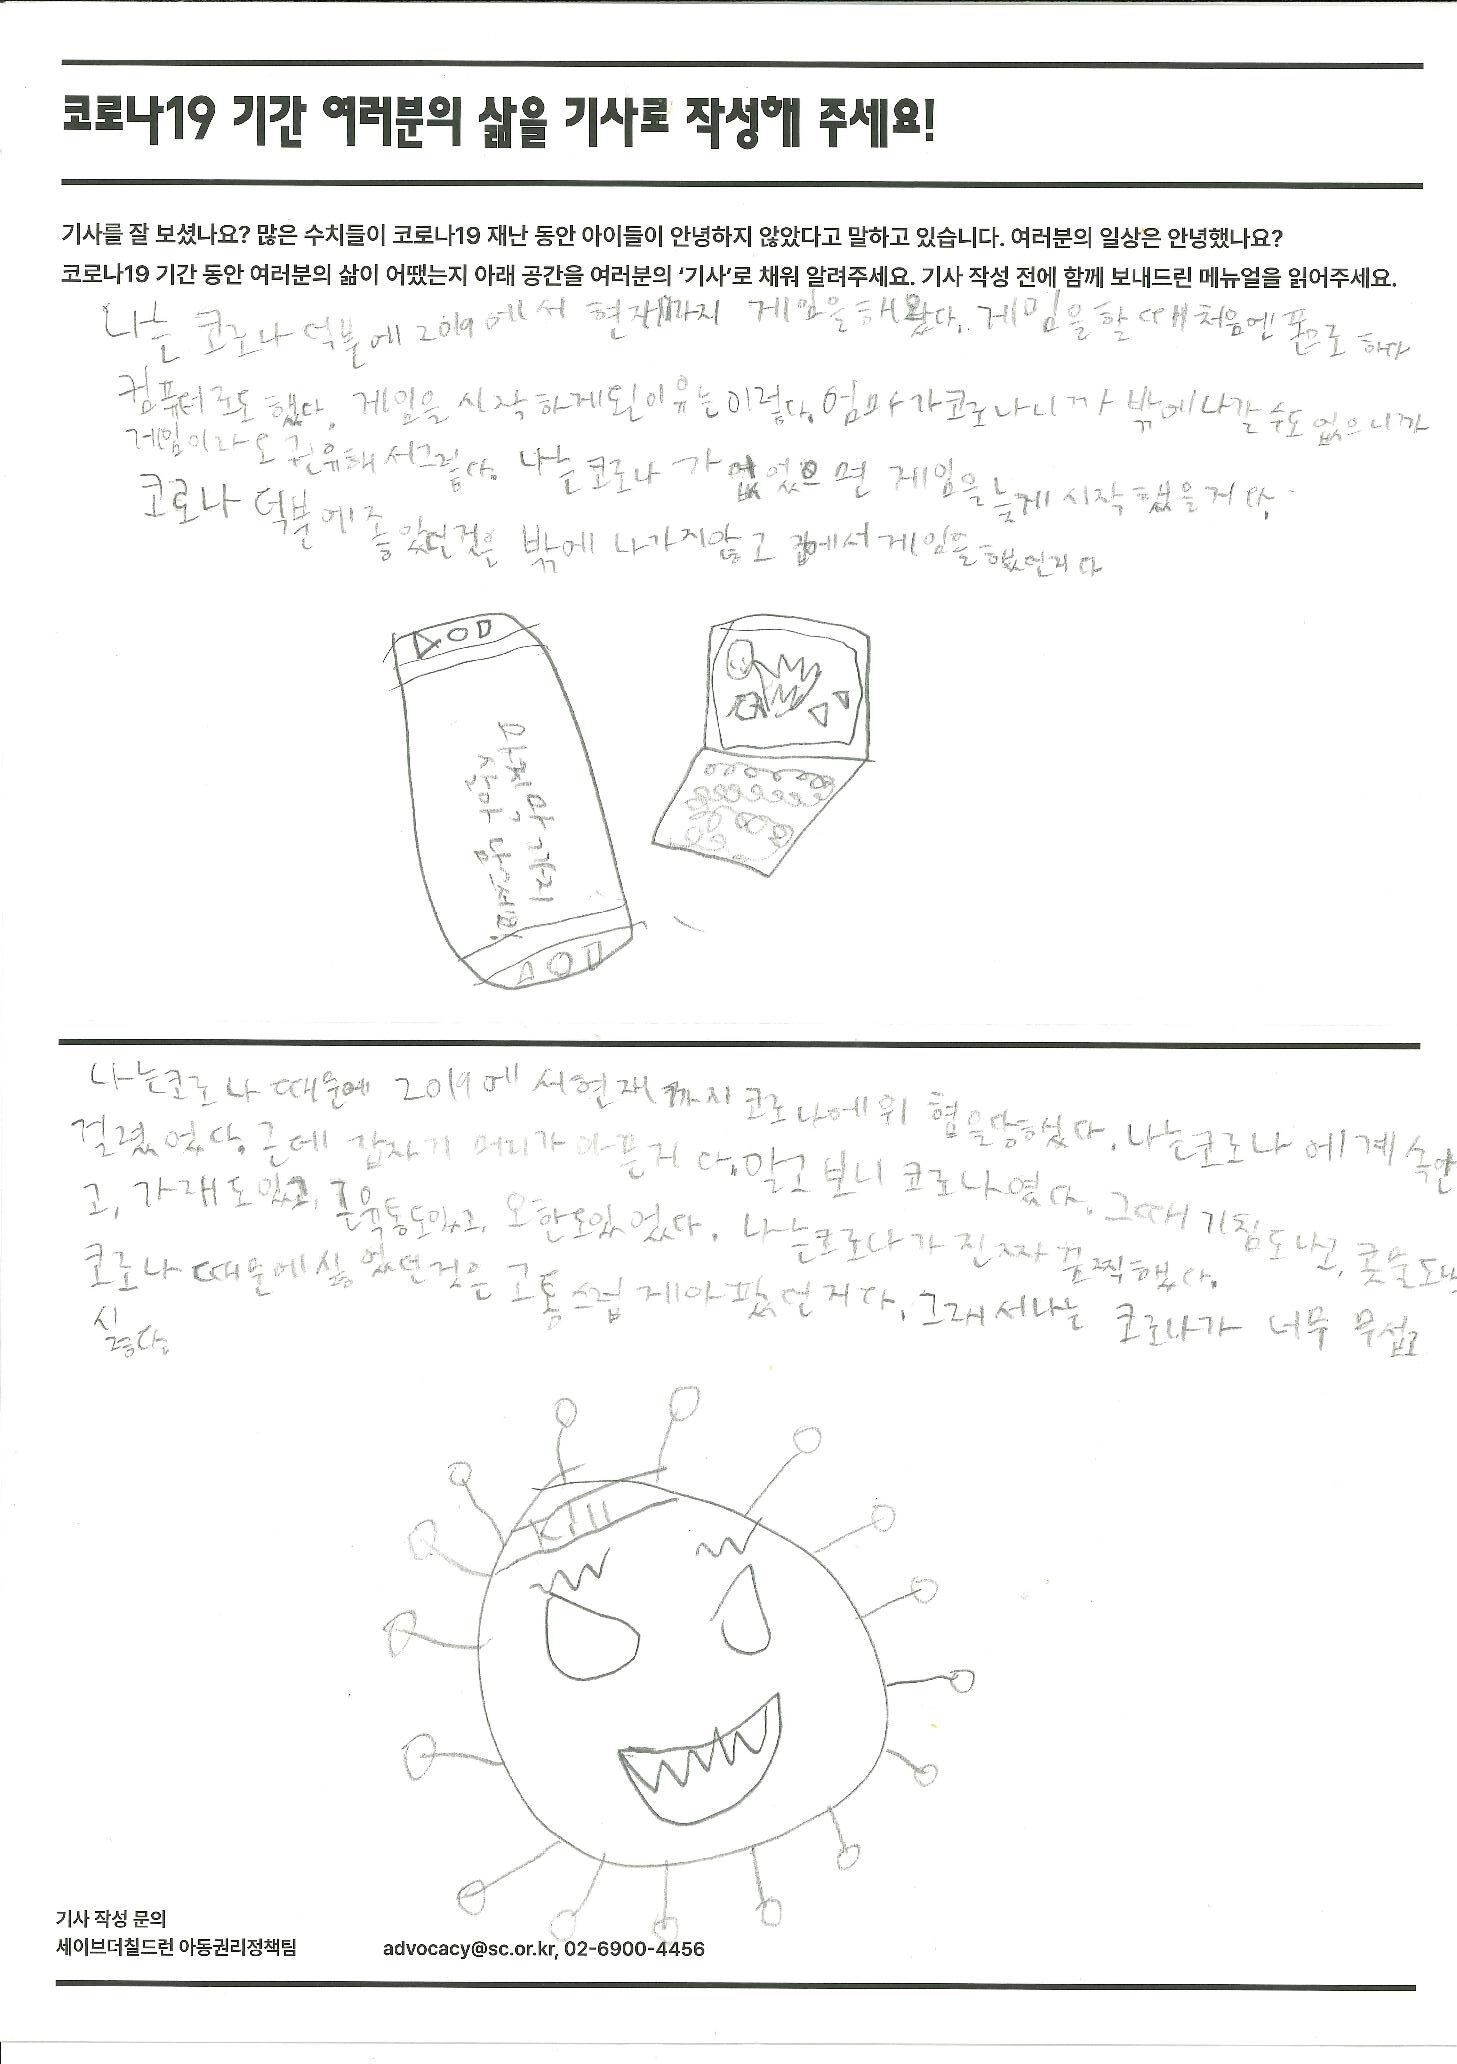 코로나19 기간 여러분의 삶을 기사로 작성해 주세요!
기사를 잘 보셨나요? 많은 수치들이 코로나19 재난 동안 아이들이 안녕하지 않았다고 말하고 있습니다. 여러분의 일상은 안녕했나요?
코로나19 기간 동안 여러분의 삶이 어땠는지 아래 공간을 여러분의 ‘기사’로 채워 알려주세요. 기사 작성 전에 함께 보내드린 메뉴얼을 읽어주세요.
나는 코로나 덕분에 2019에서 현재까지 게임을해왔다. 게임을할때처음엔 폰으로 하다
컴퓨터로도 했다. 게임을 시작하게된이유는이렇다. 엄마가코로나니까 밖에나갈수도 없으니까
게임이라도 권유해서그렇다. 나는코로나가 없었으면 게임을늦게시작했을거다.
코로나 덕분에좋았던것은 밖에 나가지않고 집에서게임을했던거다
마지막 기회
AOD
Kill
나는코로나 때문에 2019에서현재까지 코로나에위협을당하였다. 나는코로나에계속안
걸렸었다. 근데 갑자기 머리가아픈거다. 알고보니 코로나였다. 그때 기침도나고, 콧물도나
고, 가래도있고, 근육통도있고, 오한도있었다. 나는코로나가 진짜끔찍했다.
코로나 때문에싫었던것은 고통스럽게아팠던거다. 그래서나는 코로나가 너무 무섭고
싫다.
기사 작성 문의
세이브더칠드런 아동권리정책팀 advocacy@sc.or.kr, 02-6900-4456